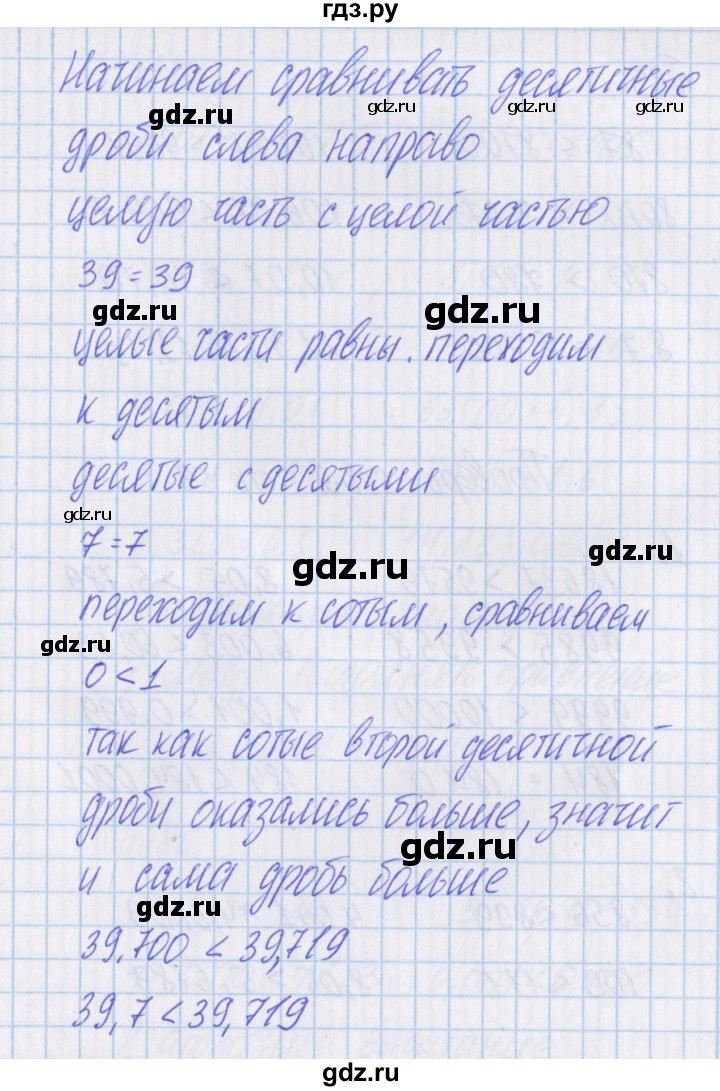 гдз.ру
Начинаем сравнивать десятичные
gdz.ru gdz.ru gdz.ru
дроби слева направо
целую часть с целой частью
39=39
gdz.ru gdz.ru
целые части равны. переходим
к десятым
десятые с десятыми
gdz.ru
7=7
gdz.ru gdz.ru
переходим к сотым, сравниваем
gdz.ru
0<1
так как сотые второй десятичной
дроби оказались больше, значит
gdz.ru
и сама дробь больше
gdz.ru
39,700 < 39,719
39,7 < 39,719
gdz.ru gdz.ru